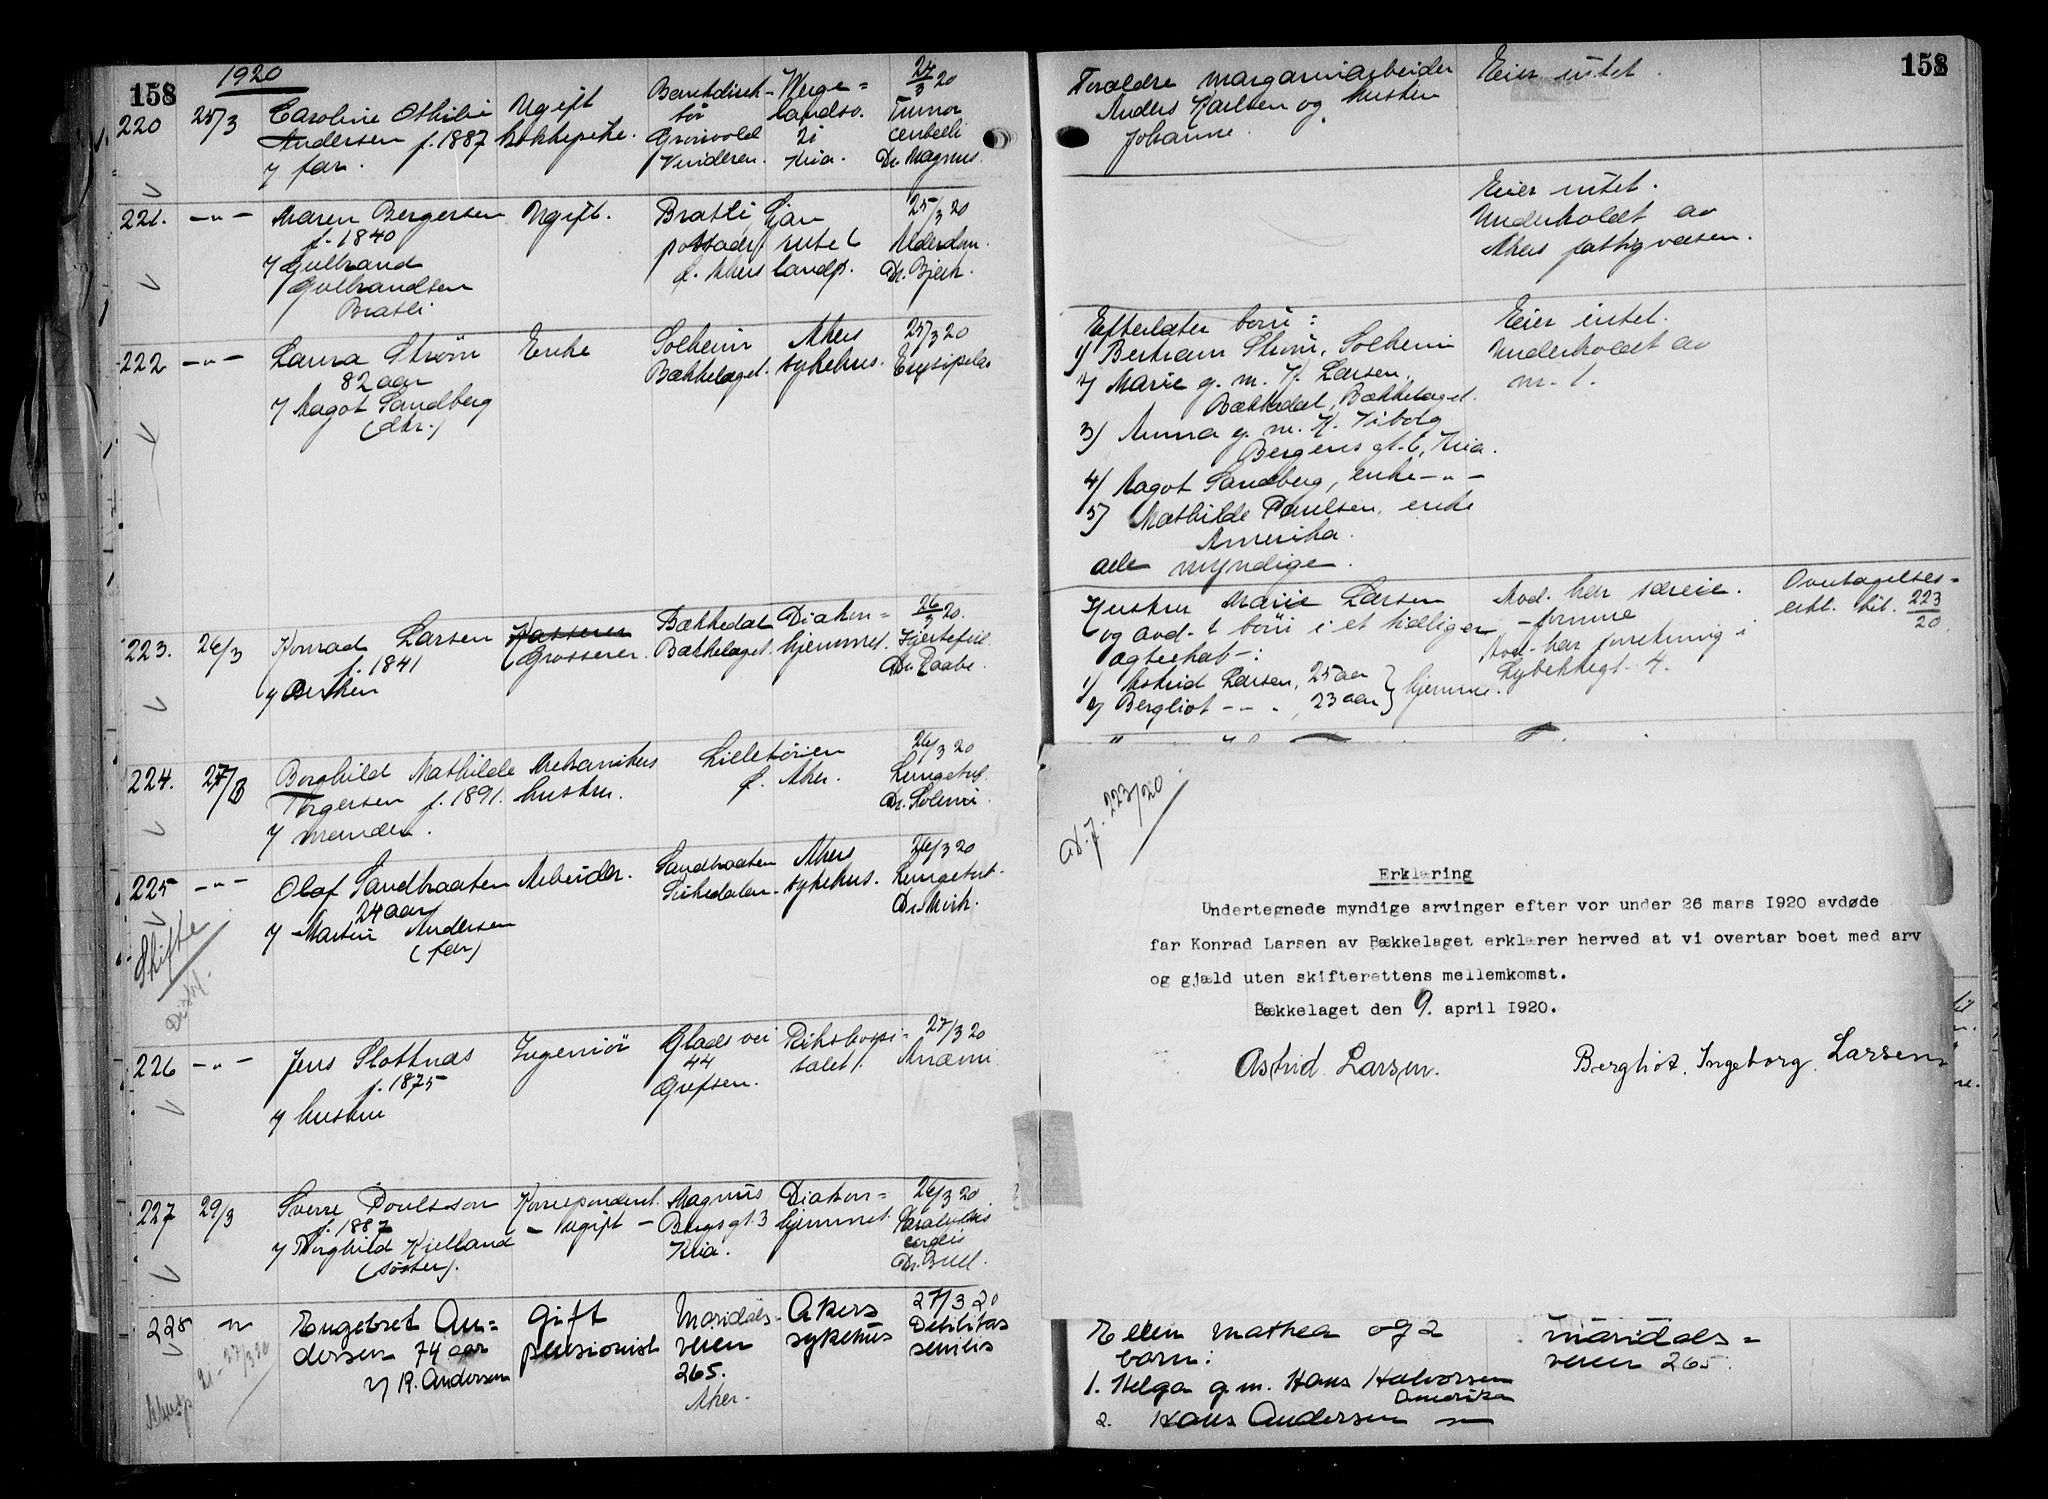 158
1920
220 25/3 Caroline Othilie Ugift
Andersen f. 1887 kokkepike.
v/ far.
Grönvold
Vinderen.
Werge=
landsv.
Kria.
24/3 20
Tumor
cerebelli
Dr. Magnus.
221. -"- Maren Bergersen Ugift.
f. 1840
v/ Gulbrand
Gulbrandsen
Bratli
Bratli, Ljan
25/3 20
Alderdom.
222 -"- Laura Strøm Enke
82 aar
v/ Aagot Sandberg
(dtr.)
Solheim
Bækkelaget.
Akers
sykehus.
25/3 20
Erysipelas
223. 26/3 Konrad Larsen Kasserer
f. 1841 Grosserer.
Bækkedal
Bækkelaget.
Diakon=
hjemmet.
26/3 20.
Hjertefeil
Dr. Raabe.
224. 27/3 Borghild Mathilde Mekanikers
Torgersen f. 1891. hustru.
v/ manden.
Lilletörien
Ø. Aker.
26/3 20
225 -"- Olaf Sandbraaten Arbeider.
24 aar
v/ Martin Andersen
(far)
Skifte
Sandbraaten
Akers
sykehus.
26/3 20
226 -"- Jens Slottnæs Ingeniör
f. 1875
v/ hustru
Glads vei
44
Grefsen.
Rikshospi=
talet.
27/3 20
Anæmi
227 29/3 Sverre Poulsson Korrespondent.
f. 1887 - ugift -
v/ Borghild Kielland
(söster).
Magnus
Bergs gt. 3
Kria.
Diakon=
hjemmet.
26/3 20
Dr. Bull.
228 -"- Engebret An=
dersen 74 aar
v/ R. Andersen
Gift
pensionist
Maridals-
veien
265.
Aker.
Akers
sykehus
27/3 20
Debilitas
senilis
158
Forældre margarinarbeider
Anders Karlsen og hustru
Johanne.
Eier intet.
Eier intet.
Underholdt av
Akers fattigvæsen.
Efterlater barn:
1) Bertram Strøm, Solheim
2) Marie g. m. K. Larsen,
Bækkedal, Bækkelaget.
3) Anna g. m. K. Viborg
Bergens gt. 6, Kria.
4) Aagot Sandberg, enke -"-
5) Mathilde Paulsen, enke
Amerika.
alle myndige.
Eier intet.
Underholdt av
nr. 1.
Hustru Marie Larsen
og avd.s barn i et tidligere
egteskab:
1) Astrid Larsen, 25 aar
2) Bergliot -"- , 23 aar } hjemme.
Avd. har særeie.
-formue
Avd. har forretning i
Lybekkegt. 4.
Overtagelses=
erkl. bil. 223/20
ad. J. 223/20
Erklæring
Undertegnede myndige arvinger efter vor under 26 mars 1920 avdøde
far Konrad Larsen av Bækkelaget erklærer herved at vi overtar boet med arv
og gjæld uten skifterettens mellemkomst.
Bækkelaget den 9. april 1920.
Astrid Larsen.
Bergliot. Ingeborg. Larsen.
Ellen Mathea og 2
barn:
1. Helga g.m. Hans Halvorsen
Amerika
2. Hans Andersen -"-
Maridals=
veien 265.